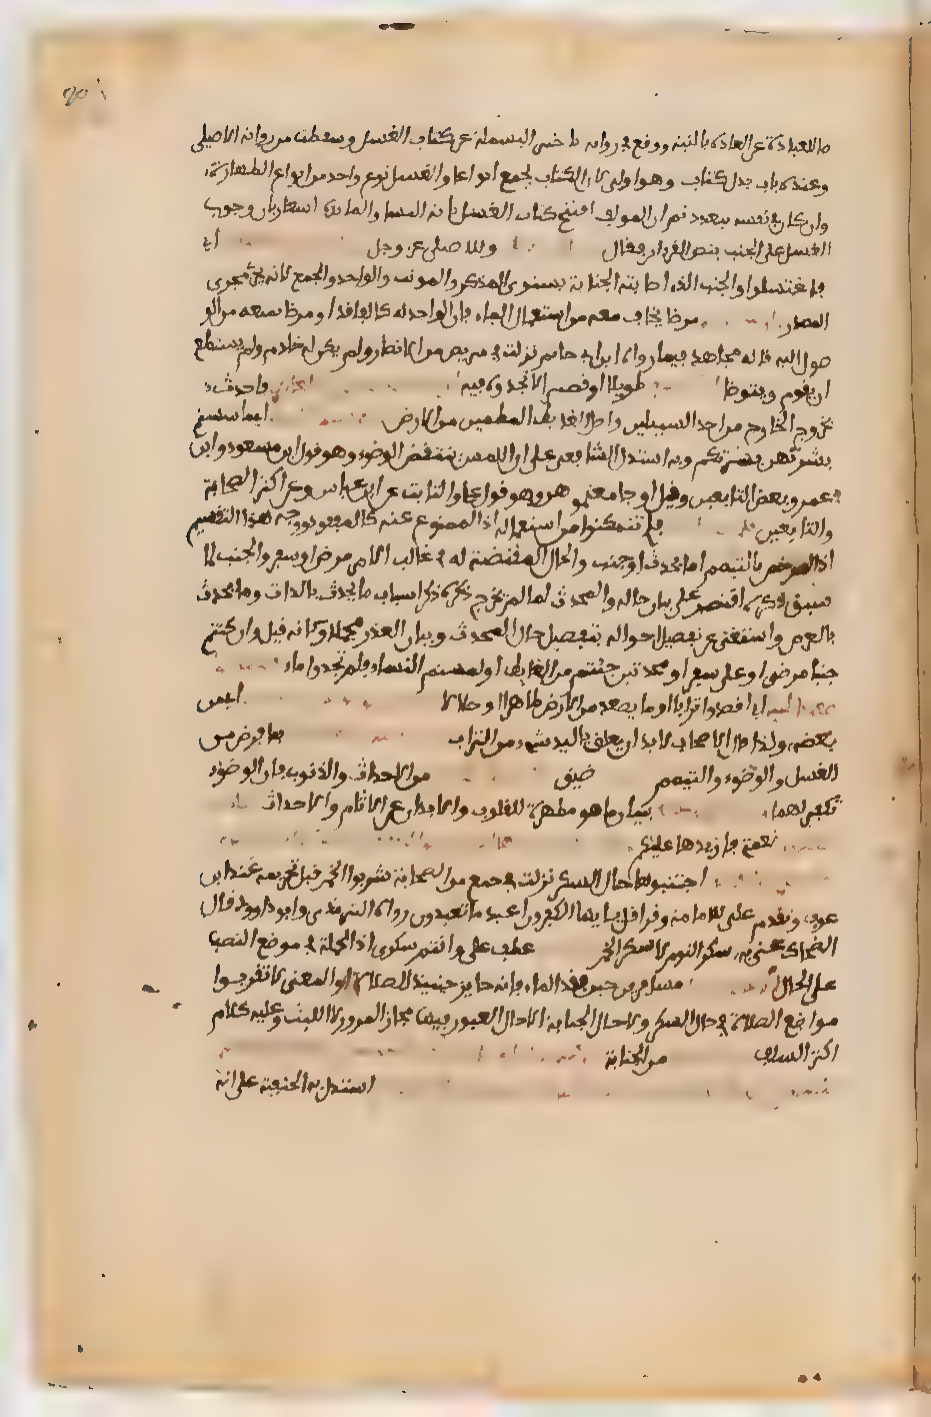 للعبادة عن العادة بالنية ووقع في رواية تاخير البسملة عن كتاب الغسل وسقطت من رواية الاصيلي
وعنده باب بدل كتاب وهو اولى لان الكتاب يجمع انواعا والغسل نوع واحد من انواع الطهارة
وان كان في نفسه يتعدد ثم ان المولف افتتح كتاب الغسل باية النسا والمايدة اشعارا بان وجوب
الغسل على الجنب بنص القران فقال وللاصيلي عز وجل اي
فاغتسلوا والجنب الذي اصابته الجنابة يستوي المذكر والمونث والواحد والجمع لانه يجري مجرى
المصدر مرضا يخاف معه من استعمال الماء فان الواجد له كالفاقد او مرضا يمنعه من الو
صول اليه قاله مجاهد فيما رواه ابن ابي حاتم نزلت في مريض من الانصار ولم يكن له خادم ولم يستطع
ان يقوم ويتوضا طويلا او قصير الا تجدوه فيه فاحدث
بخروج الخارج من احد السبيلين واصل الغايط المطمين من الارض اي ماسستم
بشرتهن ببشرتكم وبه استدل الشافعي على ان اللمس ينقض الوضوء وهو قول ابن مسعود وابن
عمر وبعض التابعين وقيل او جامعتموهن وهو قول علي والثابت عن ابن عباس وعن اكثر الصحابة
والتابعين فلم تتمكنوا من استعماله اذ الممنوع عنه كالمفقود ووجه هذا التقسيم
اذ المرخص بالتيمم اما محدث او جنب والحال المقتضية له في غالب الامر مرض او سفر والجنب لما
سبق ذكره اقتصر على بيان حاله والمحدث لما لم يجر ذكره ذكر اسباب ما يحدث بالذات وما يحدث
بالعرض واستغنى عن تفصيل احواله بتفصيل حال المحدث وبيان العذر مجملا وكانه قيل وان كنتم
جنبا مرضى او على سفر او محدثين جئتم من الغايط او لمستم النساء فلم تجدوا ماء
اي اقصدوا ترابا او ما يصعد من الارض طاهرا او حلالا
بعضه ولذا قال اصحابنا لا بد ان يعلق باليد شيء من التراب بما فرض من
الغسل والوضوء والتيمم ضيق من الاحداث والذنوب فان الوضوء
تكفير لهما بيان ما هو مطهرة للقلوب والابدان عن الاثام والاحداث
نعمة فازيدها عليكم
اجتنبوها حال السكر نزلت في جمع من الصحابة شربوا الخمر قبل تحريمه عند ابن
عوف وتقدم علي للامامة وقرا قل يا ايها الكافرون اعبد ما تعبدون رواه الترمذي وابو داوود قال
الضحاك عنى به سكر النوم لا سكر الخمر عطف على وانتم سكرى اذ الجملة في موضع النصب
على الحال مسافرين حين فقد الماء فانه جايز حينيذ للصلاة او المعنى لا تقربوا
مواضع الصلاة في حال السكر ولا حال الجنابة الا حال العبور فيها فجاز المرور لا اللبث وعليه كلام
اكثر السلف من الجنابة
استدل به الحنفية على انه